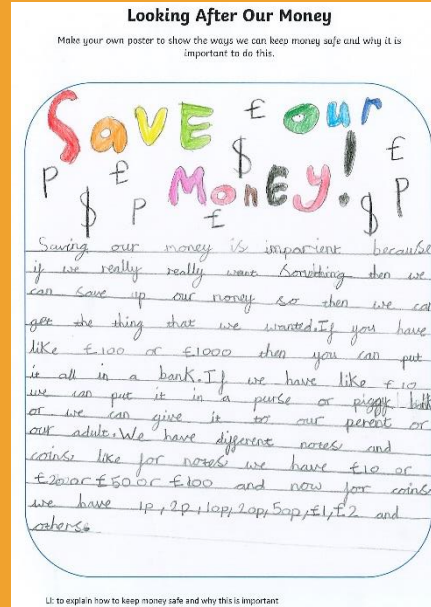 Looking After Our Money
Make your own poster to show the ways we can keep money safe and why it is
important to do this.
SAVE our
MONEY!
£ £ £ £ $ $ $ P P P
Saving our money is imporient because
if we really really want Something then we
can save up our money so then we cal
get the thing that we wanted. If you have
like £100 or £1000 then you can put
it all in a bank. If we have like £10
we can put it in a purse or piggy bank
or we can give it to our perent or
our adult. We have different notes and
coins like for notes we have £10 or
£20 or £50 or £100 and now for coins
we have 1p, 2p, 10p, 20p, 50p, £1, £2 and
others.
LI: to explain how to keep money safe and why this is important